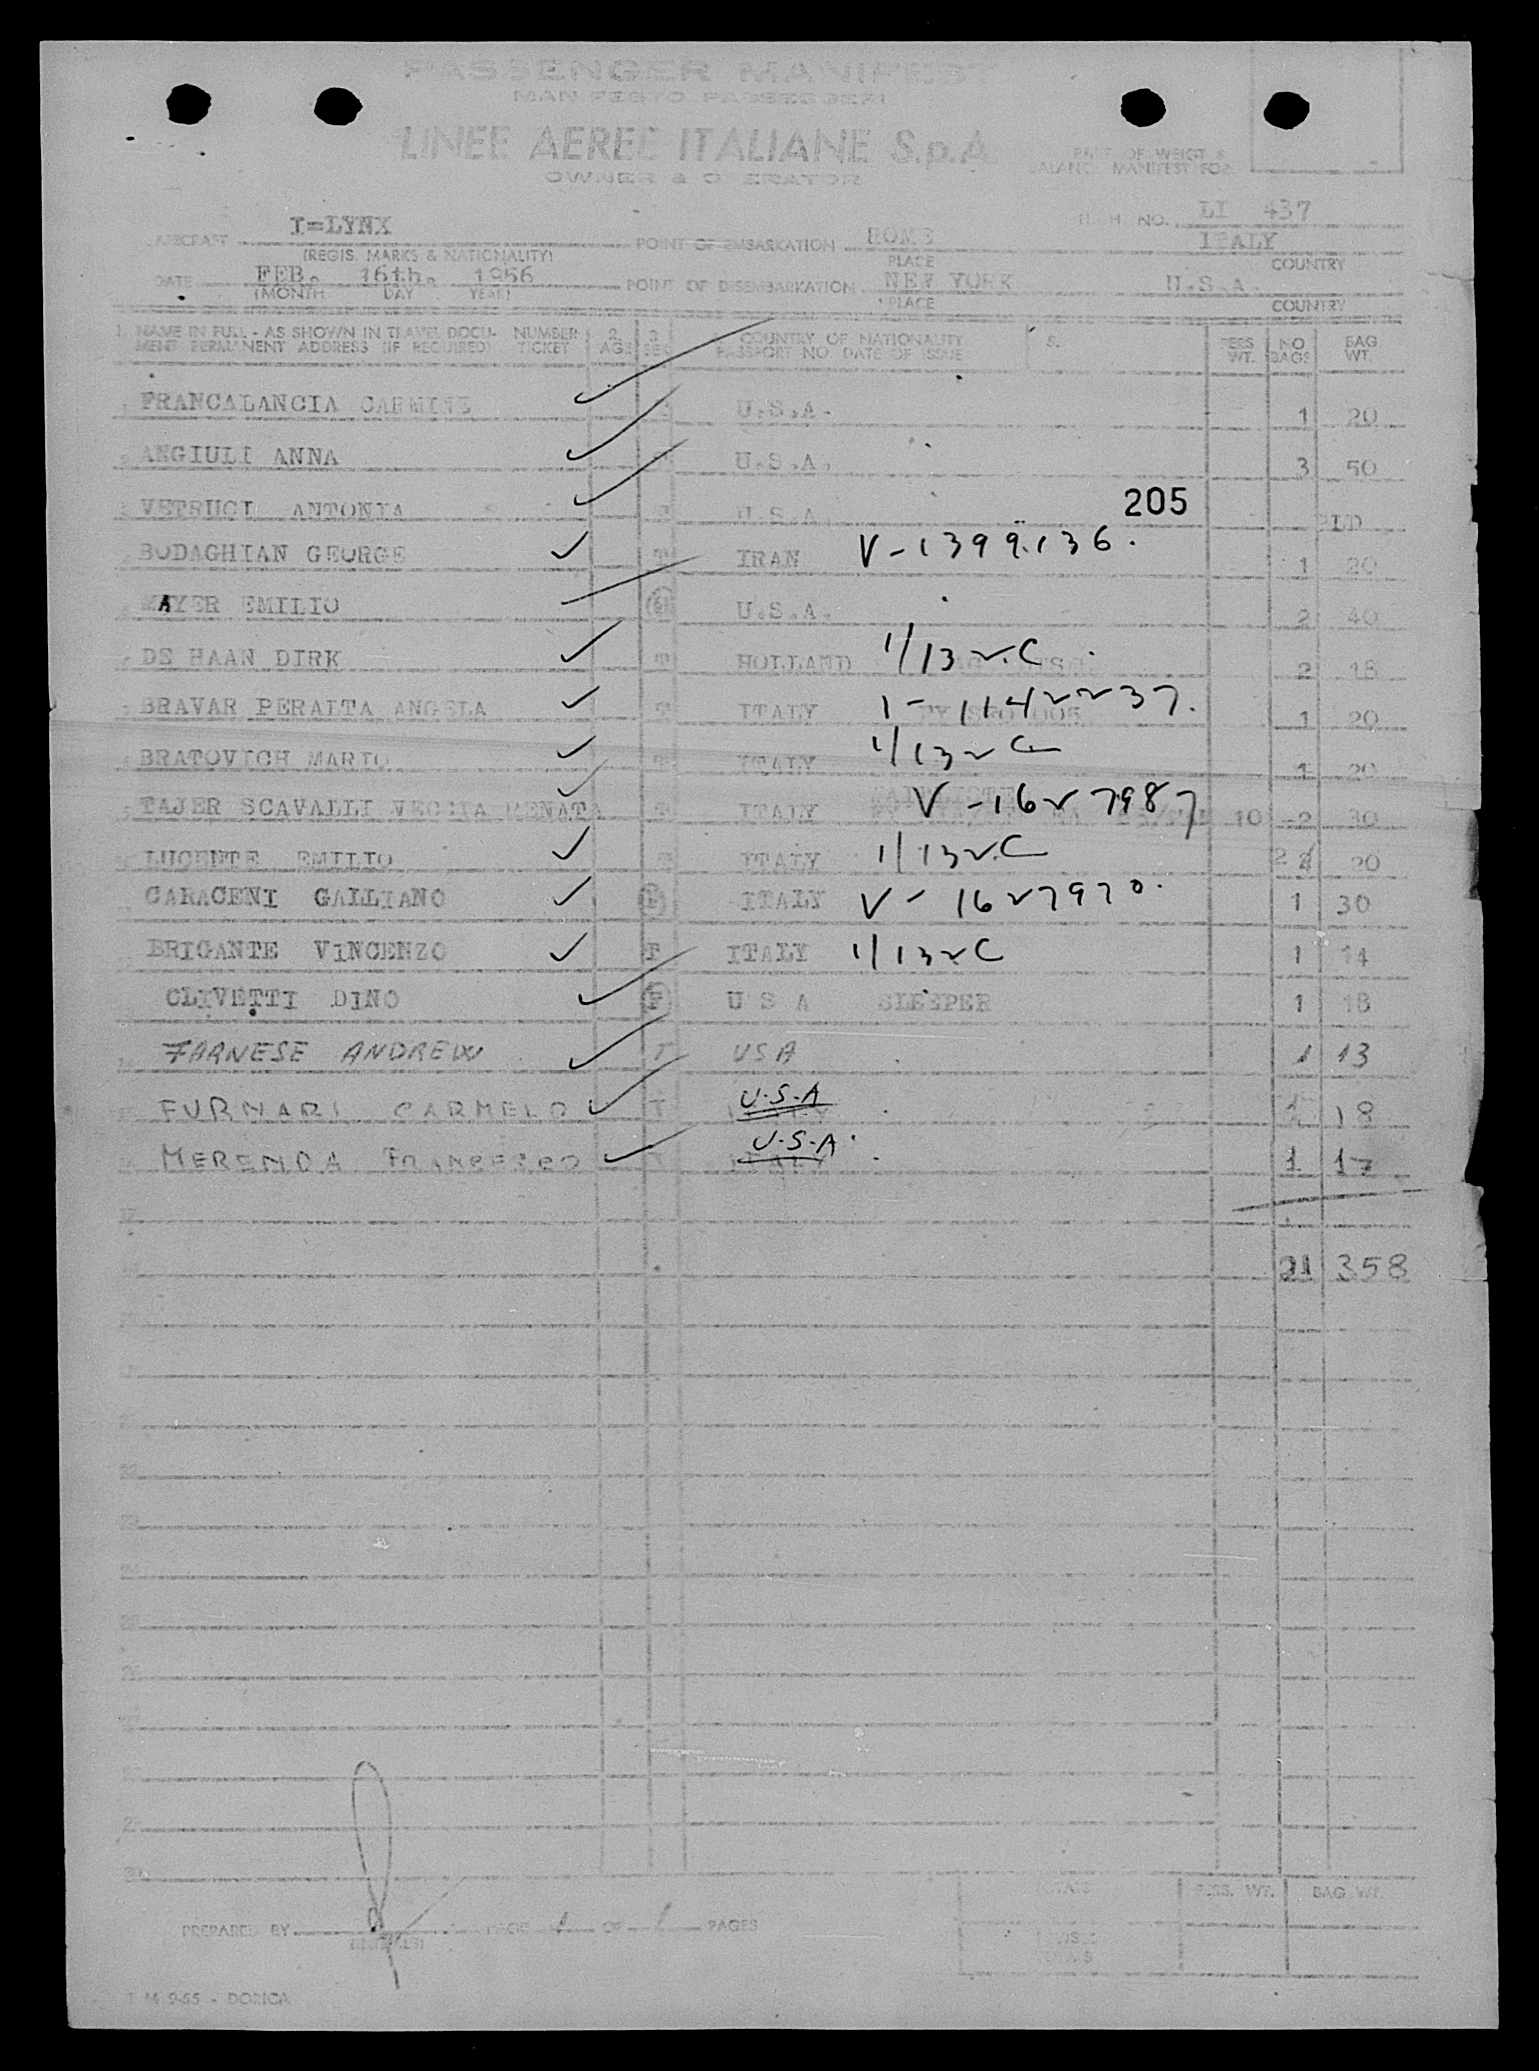 PASSENGER MANIFEST
MANIFESTO PASSEGGERI
LINEE AEREE ITALIANE S.p.A.
OWNER & OPERATOR
PART OF WEIGT &
BALANCE MANIFEST FOR
NO. LI 437
AIRCRAFT I=LYNX POINT OF EMBARKATION ROME ITALY
(REGIS. MARKS & NATIONALITY) PLACE COUNTRY
DATE FEB. 16th. 1956 POINT OF DISEMBARKATION NEW YORK U.S.A.
(MONTH DAY YEAR) PLACE COUNTRY
1. NAME IN FULL - AS SHOWN IN TRAVEL DOCU- NUMBER 2. 3. COUNTRY OF NATIONALITY 5. PERS NO BAG
MENT PERMANENT ADDRESS (IF REQUIRED) TICKET AGE SEX PASSPORT NO DATE OF ISSUE WT. BAGS WT.
FRANCALANCIA CARMINE U.S.A. 1 20
ANGIULI ANNA U.S.A. 3 50
205
VETRUCI ANTONIA U.S.A.
BODAGHIAN GEORGE IRAN V-1399136. 1 20
MAYER EMILIO U.S.A. 2 40
DE HAAN DIRK HOLLAND 2 18
BRAVAR PERALTA ANGELA ITALY 1 20
BRATOVICH MARIO ITALY 1 20
TAJER SCAVALLI VECCIA RENATA ITALY V-1627987 10 2 30
LUCENTE EMILIO ITALY 20
CARACENI GALLIANO ITALY V- 1627970. 1 30
BRIGANTE VINCENZO T ITALY 1 14
CLIVETTI DINO F U S A SLEEPER 1 18
FARNESE ANDREW T USA 1 13
FURNARI CARMELO T U.S.A 1 18
MERENDA FRANCESCO T U.S.A. 1 17
21 358
PREPARED BY PAGE 1 OF 1 PAGES
TOTALS PASS. WT. BAG WT.
T M 9-55 - DORICA